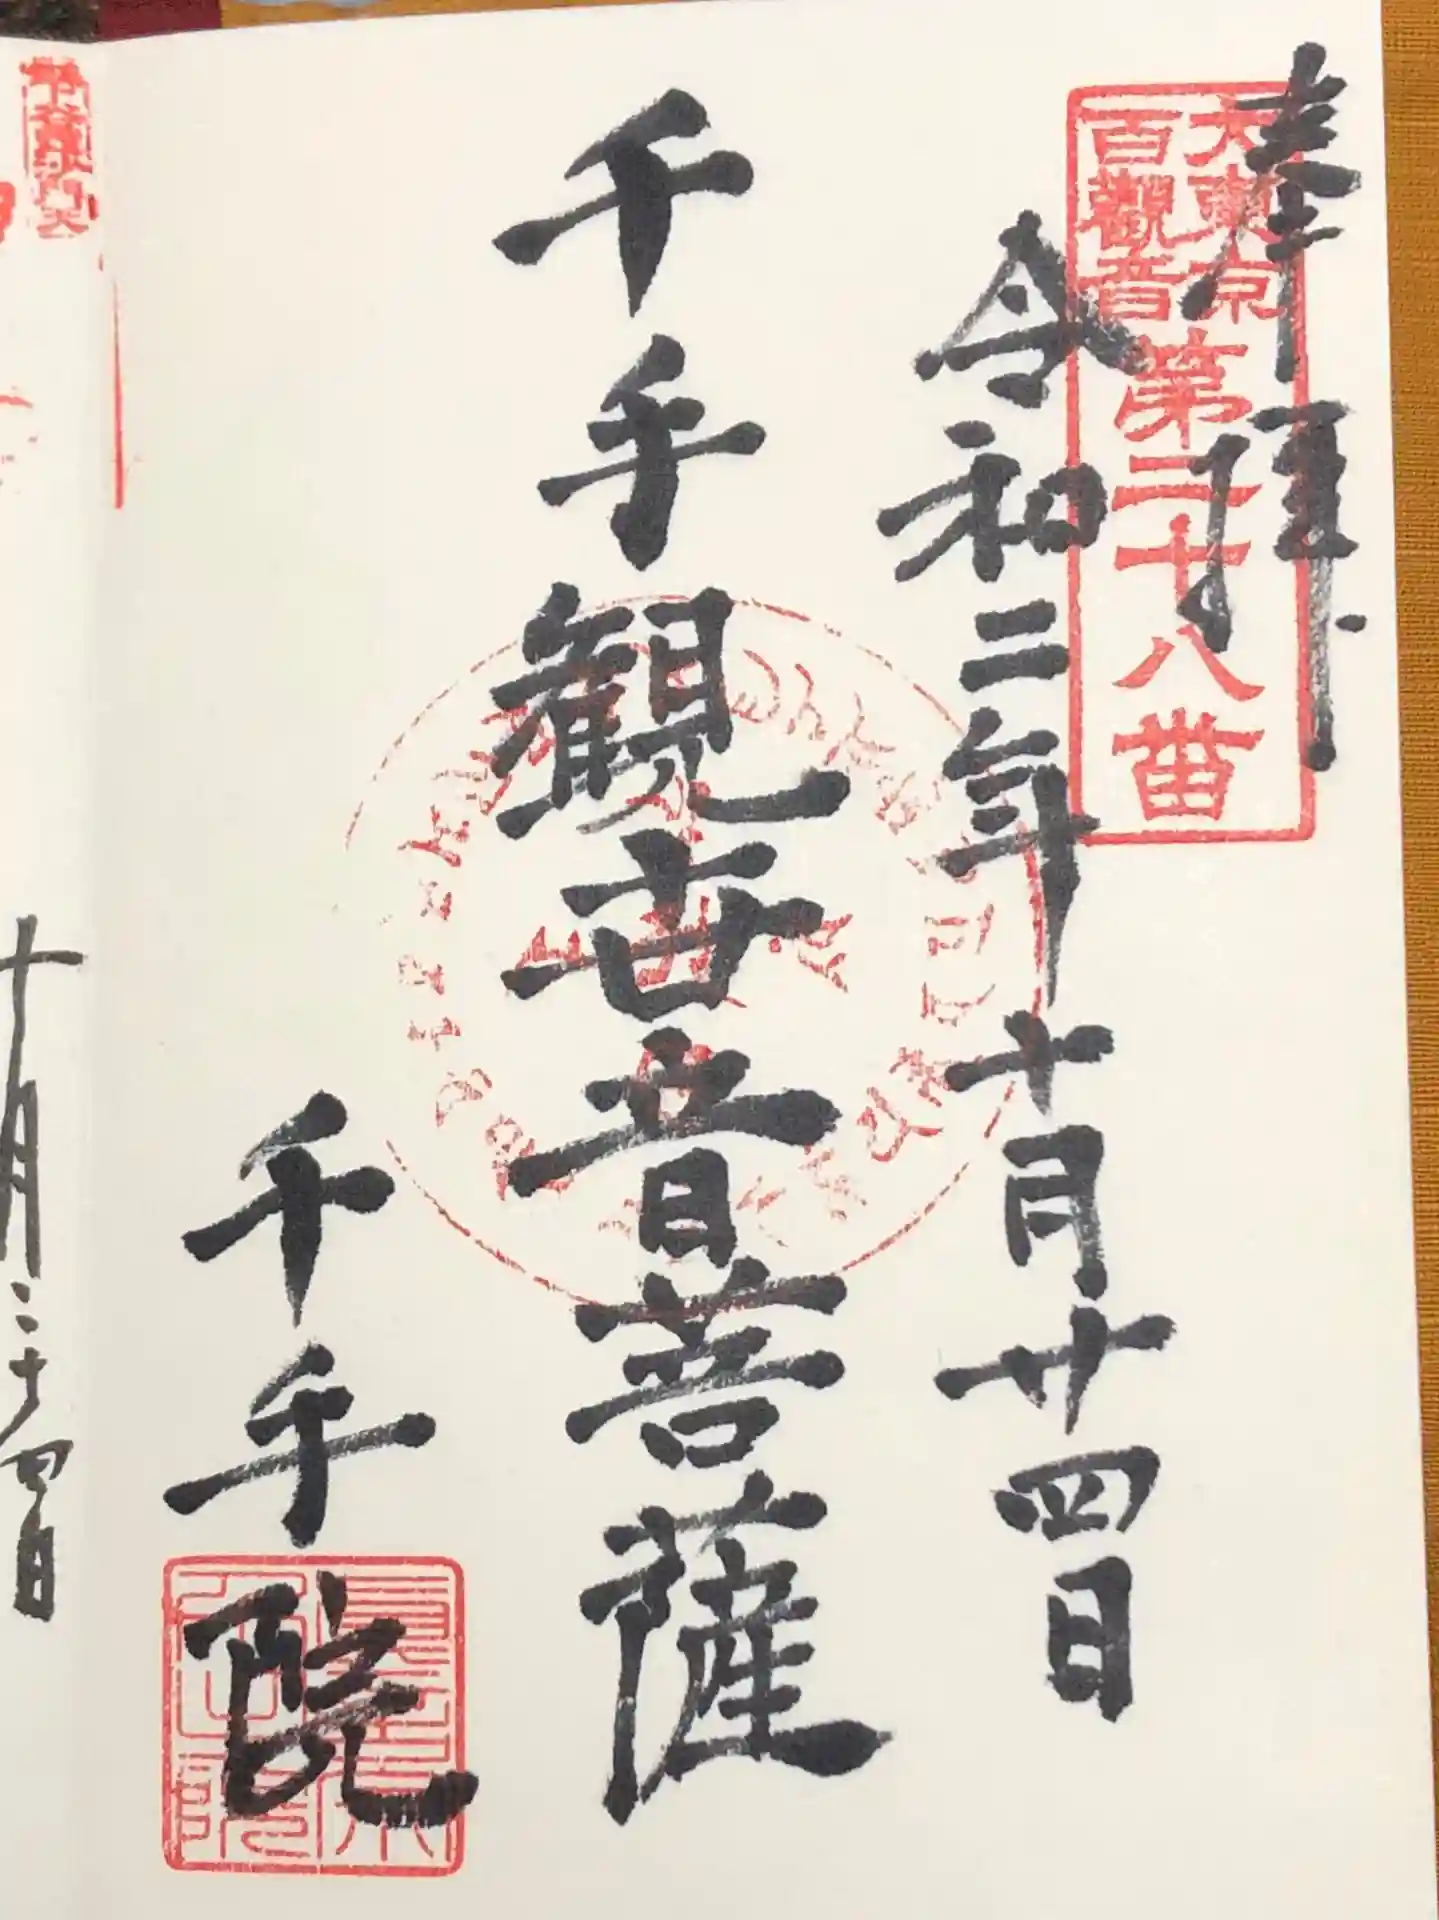 奉拝
大東京
百觀音
第二十八番
令和二年十月廿四日
千手観世音菩薩
千手院
十月二十四日